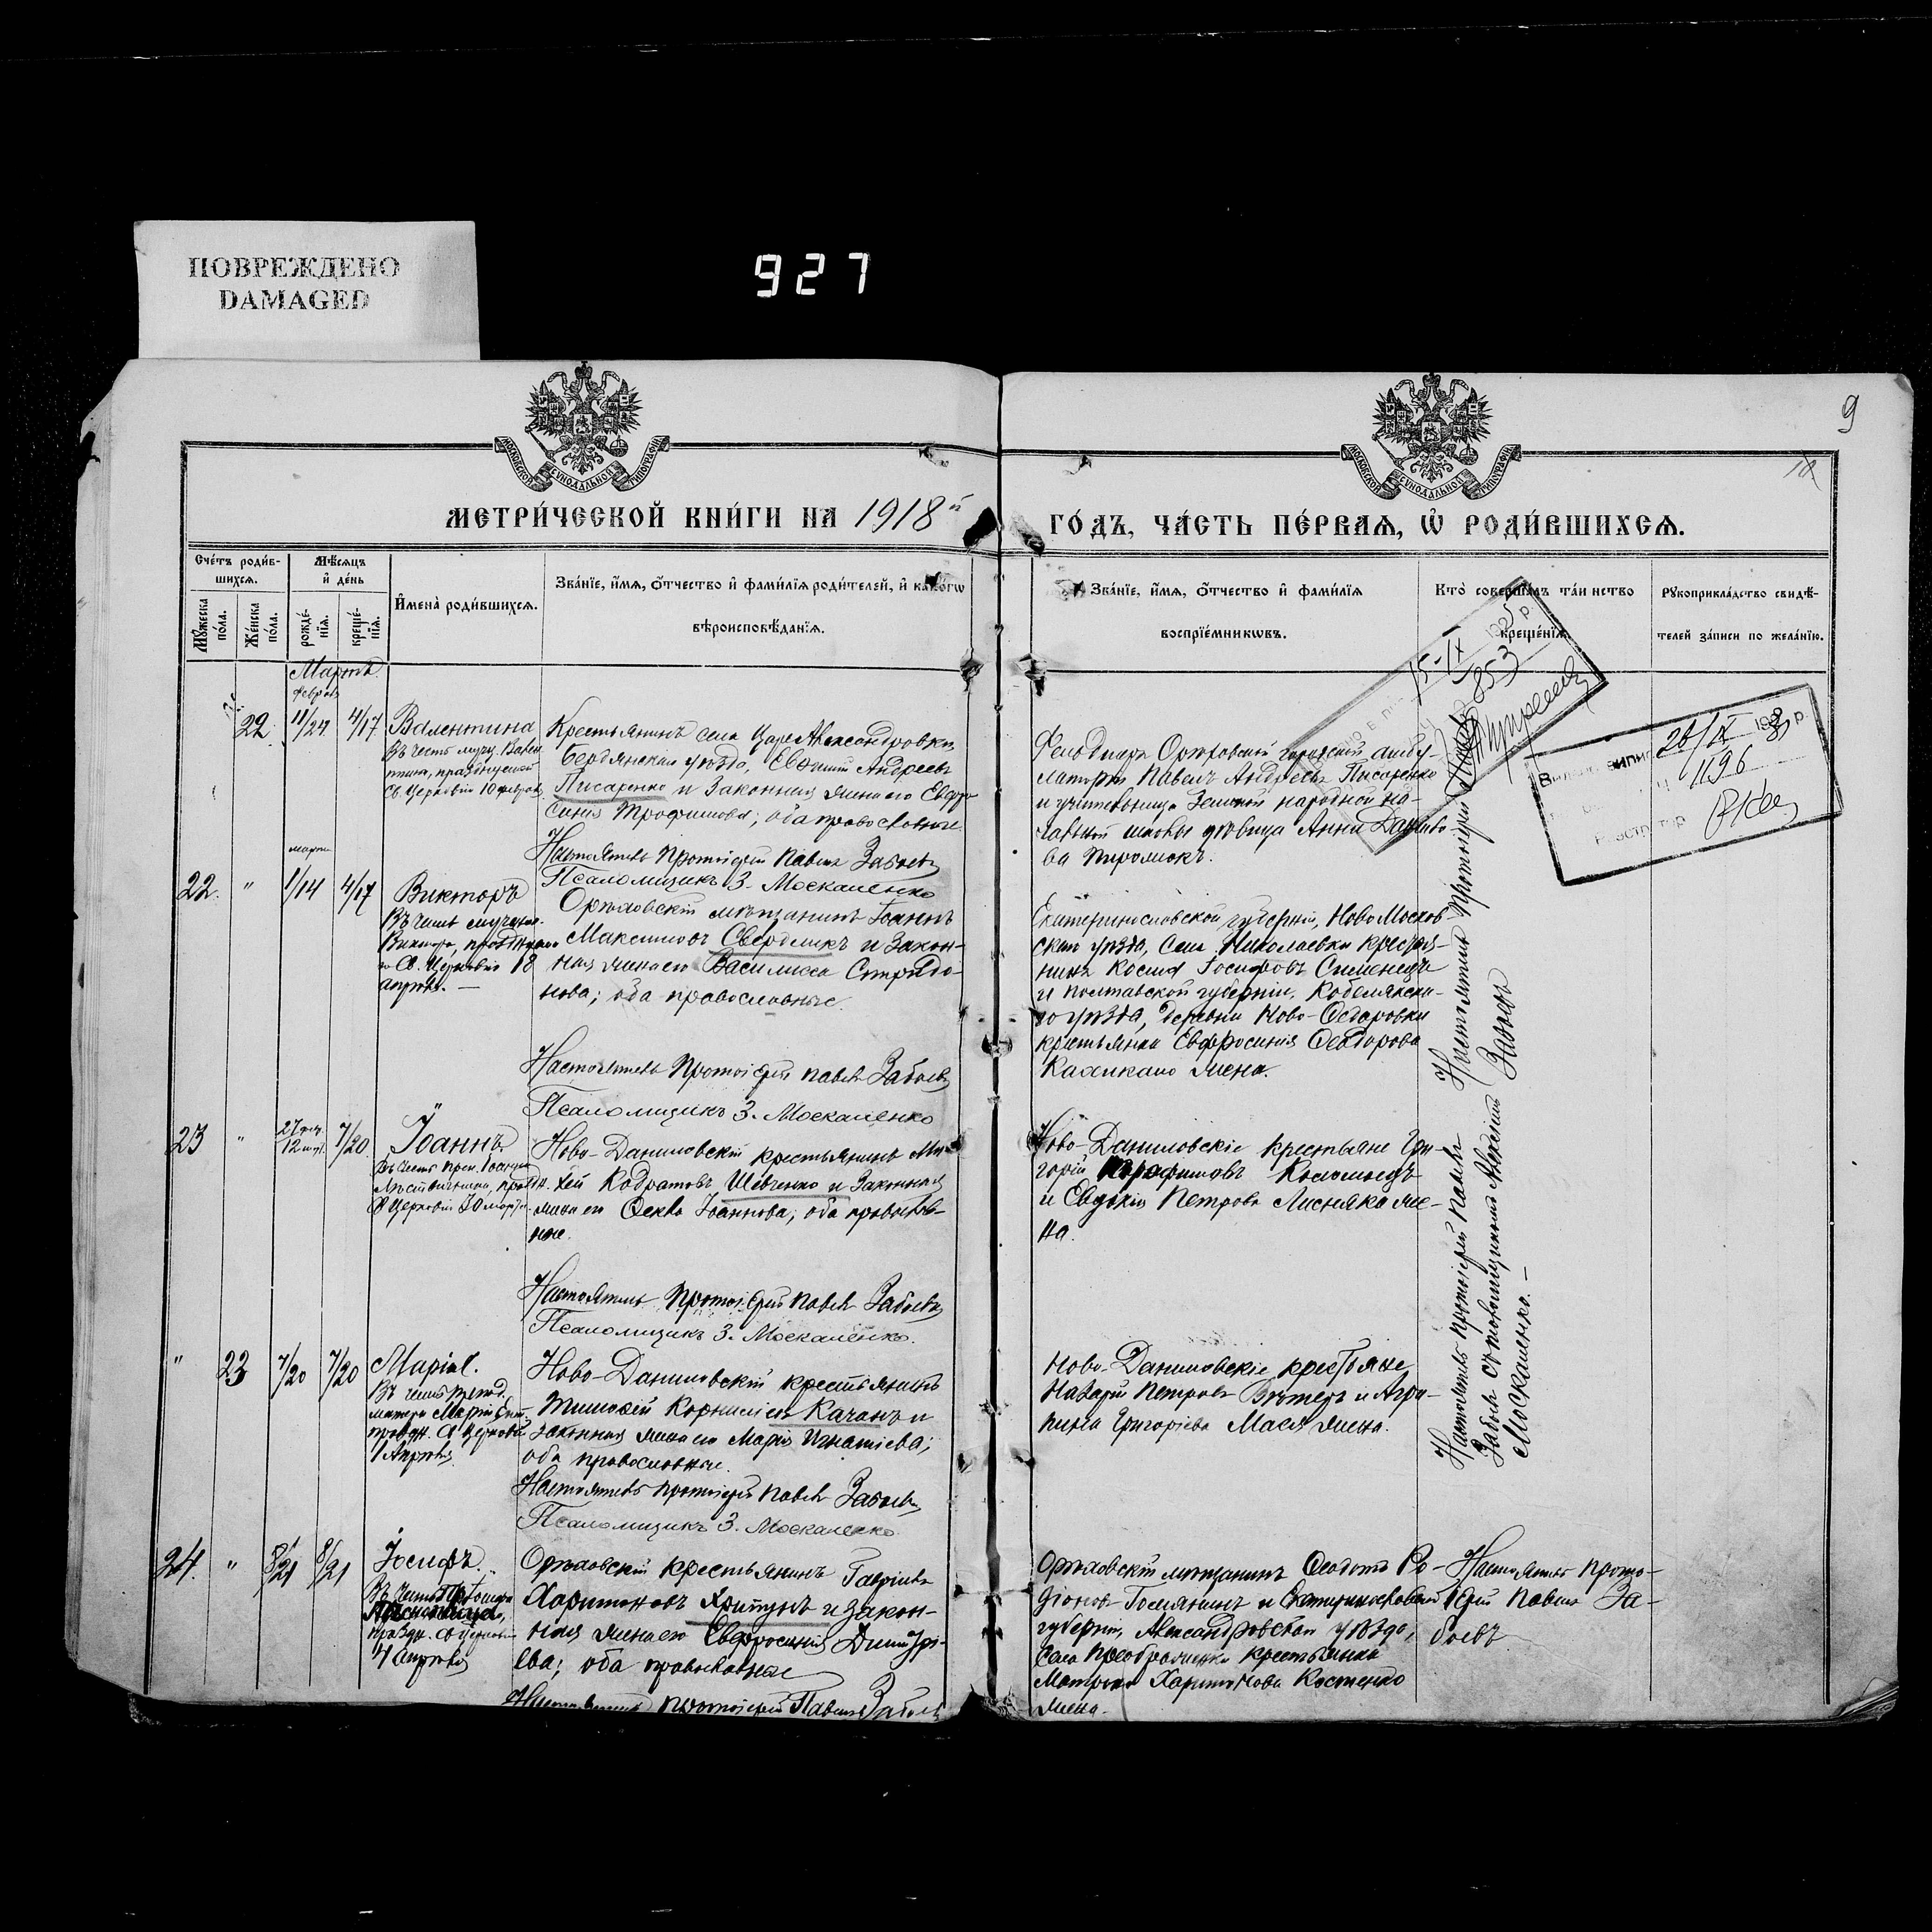 ПОВРЕЖДЕНО
DAMAGED
927
9
10
МОСКОВСКОЙ СѴНОДАЛЬНОЙ ТИПОГРАФІИ
МОСКОВСКОЙ СѴНОДАЛЬНОЙ ТИПОГРАФІИ
МЕТРИ́ЧЕСКОЙ КНИ́ГИ НА 1918й
ГО́ДЪ, ЧА́СТЬ ПЕ́РВАѦ, Ѡ҆ РОДИ́ВШИХСѦ.
Сче́тъ роди́в-
шихсѧ.
Мꙋ́жеска по́ла.
Же́нска по́ла.
Мѣ́сѧцъ
и҆ де́нь
рожде́-
нїѧ.
креще́-
нїѧ.
И҆мена̀ роди́вшихсѧ.
Зва́нїе, и҆́мѧ, ѻ҆́тчество и҆ фами́лїѧ роди́телей, и҆ како́гѡ
вѣроисповѣ́данїѧ.
Зва́нїе, и҆́мѧ, ѻ҆́тчество и҆ фами́лїѧ
воспрїе́мникѡвъ.
Кто̀ соверша́лъ та́инство
креще́нїѧ.
Рꙋкоприкла́дство свидѣ́-
телей за́писи по жела́нїю.
Мартъ
22. 11/24 4/17 Валентина
Св. Церковію 10 февраля
Крестьянинъ села ЦареАлександровки
Бердянскаго уѣзда, Евфимій Андреевъ
Писаренко и законная жена его Евфро-
синія Трофимова; оба православные.
Настоятель Протоіерей Павелъ Забоевъ
Псаломщикъ З. Москаленко
Орѣховской городской амбу-
латоріи Павелъ Андреевъ Писаренко
и учительница Земской народной на-
чальной школы дѣвица Анна Данило-
ва
марта
22. " 1/14 4/17 Викторъ
Въ честь мученика
Виктора, празднуемаго
Св. Церковію 18
апрѣля.
Орѣховскій мѣщанинъ Іоаннъ
Максимовъ Свердликъ и закон-
ная жена его Василисса Спиридо-
нова; оба православные.
Настоятель Протоіерей Павелъ Забоевъ
Псаломщикъ З. Москаленко
Екатеринославской губерніи, НовоМосков-
скаго уѣзда, села Николаевки крестья-
нинъ Іосифовъ Сименецъ
и Полтавской губерніи, Кобелякска-
го уѣзда, деревни Ново-Ѳедоровки
крестьянка Евфросинія Ѳеодорова
жена.
Настоятель Протоіерей
Забоевъ
23 " 27 фев. 12 мар. 7/20. Іоаннъ.
Въ честь преп. Іоанна
Лѣствичника, праздн.
Св. Церковію 30 марта.
Ново-Даниловскій крестьянинъ Ми-
хей Кодратовъ Шевченко и законная
жена его Ѳекла Іоаннова; оба православ-
ные.
Настоятель Протоіерей Павелъ Забоевъ
Псаломщикъ З. Москаленко.
Ново-Даниловскіе крестьяне Гри-
горій
и Евдокія Петрова Лисняка же-
на.
Настоятель протоіерей Павелъ
Забоевъ съ псаломщикомъ
Москаленко. —
" 23 7/20 7/20 Марія.
Въ честь препод.
матери Маріи Египт.
праздн. Св. Церковію
1 Апрѣля
Ново-Даниловскій крестьянинъ
Тимофей Корниліевъ Качанъ и
законная жена его Марія Игнатіева;
оба православные.
Настоятель Протоіерей Павелъ Забоевъ
Псаломщикъ З. Москаленко.
Ново-Даниловскіе крестьяне
Назарій Петровъ и Агри-
пина Григорьева Мася жена.
24. " 8/21 8/21 Іосифъ.
праздн. Св. Церковію
4 Апрѣля
Орѣховскій крестьянинъ Гавріилъ
Харитоновъ Хрипунъ и закон-
ная жена его Евфросинія Димитрі-
ева; оба православные
Настоятель протоіерей Павелъ Забоевъ
Орѣховскій мѣщанинъ Ѳеодотъ Ро-
діоновъ Голянинъ и Екатеринославской
губерніи, Александровскаго уѣзда,
села Преображенки крестьянка
Матрона Харитонова Костенко
жена.
Настоятель Прото-
іерей Павелъ За-
боевъ
15-IX
853
26/IX
1196